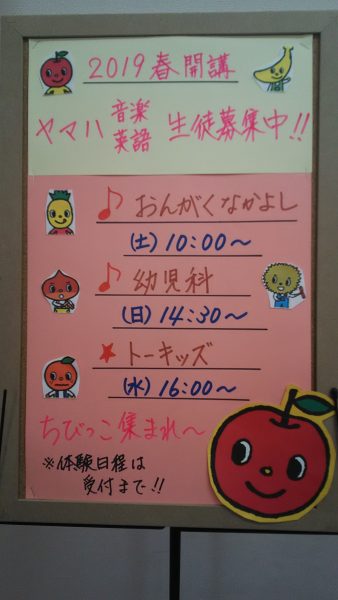 2019春開講
ヤマハ 音楽 英語 生徒募集中!!
♪おんがくなかよし
(土)10:00～
♪幼児科
(日)14:30～
★トーキッズ
(水)16:00～
ちびっこ集まれ～
※体験日程は
受付まで!!